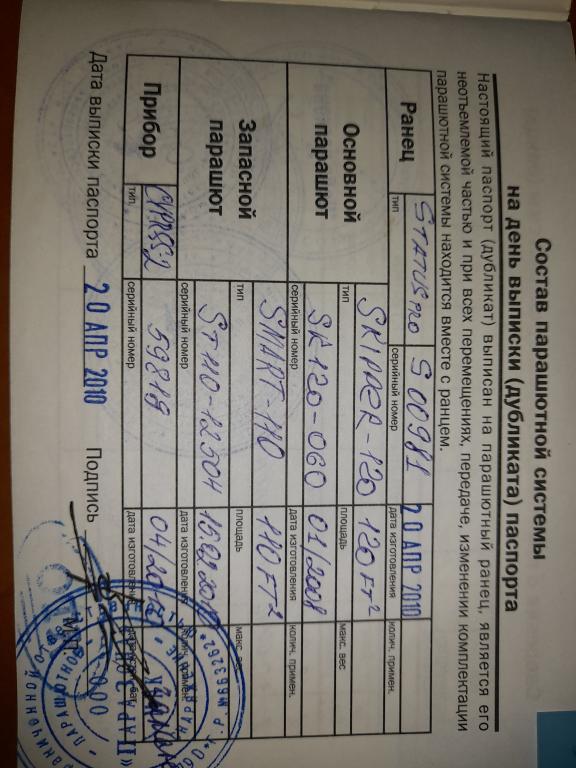 Состав парашютной системы
на день выписки (дубликата) паспорта
Настоящий паспорт (дубликат) выписан на парашютный ранец, является его
неотъемлемой частью и при всех перемещениях, передаче, изменении комплектации
парашютной системы находится вместе с ранцем.
Ранец STATUS PRO S 00981 20 АПР 2010
тип серийный номер дата изготовления колич. примен.
Основной парашют
SKIPPER-120 120 FT²
тип площадь макс. вес
SK120-060 01/2008
серийный номер дата изготовления колич. примен.
Запасной парашют
SMART-110 110 FT²
тип площадь макс. вес
ST110-12504
серийный номер дата изготовления колич. примен.
Прибор CYPRES-2 59819
тип серийный номер дата изготовления
Дата выписки паспорта 20 АПР 2010 Подпись